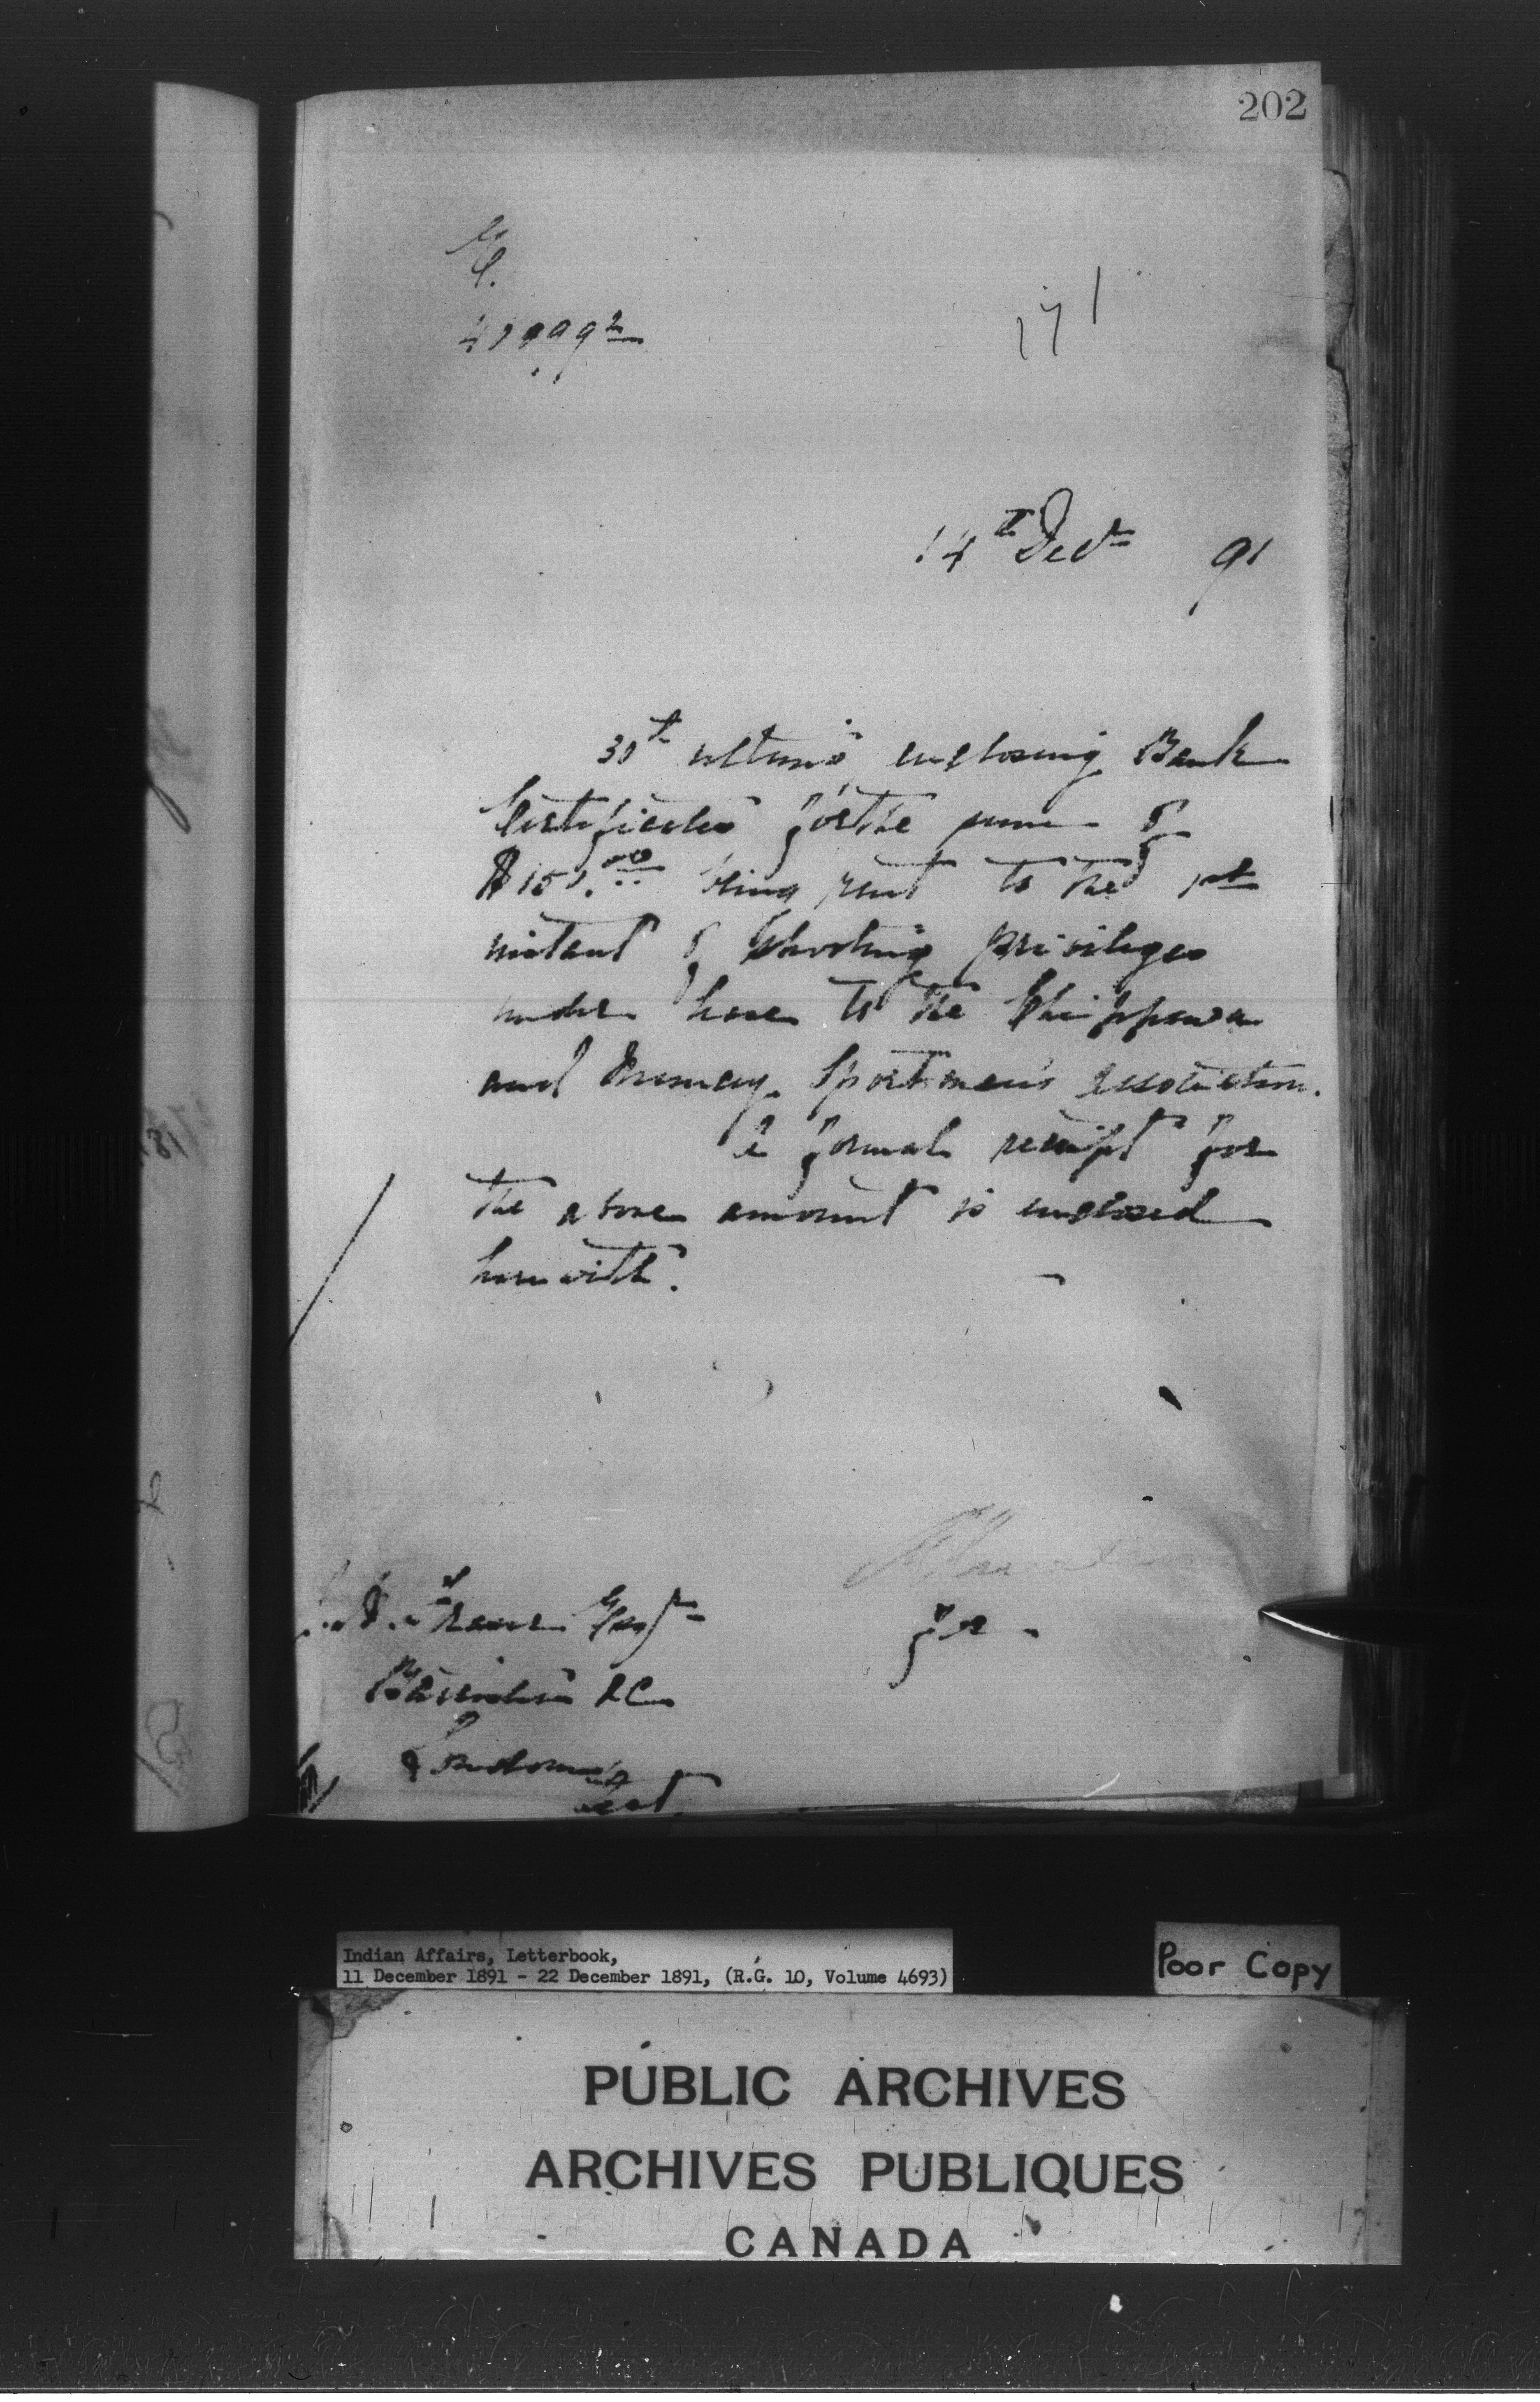 202
171
14th Decr 91
30th ultimo enclosing Bank
Certificates for the sum of
$150.00 being rent to the 1st
instant of Shooting privileges
under lease to the Chippewa
and Sportsmen's Association.
A formal receipt for
the above amount is enclosed
herewith.
Esqr
for
Barrister &c
London
Ont.
Indian Affairs, Letterbook,
11 December 1891 - 22 December 1891, (R.G. 10, Volume 4693)
Poor Copy
PUBLIC ARCHIVES
ARCHIVES PUBLIQUES
CANADA